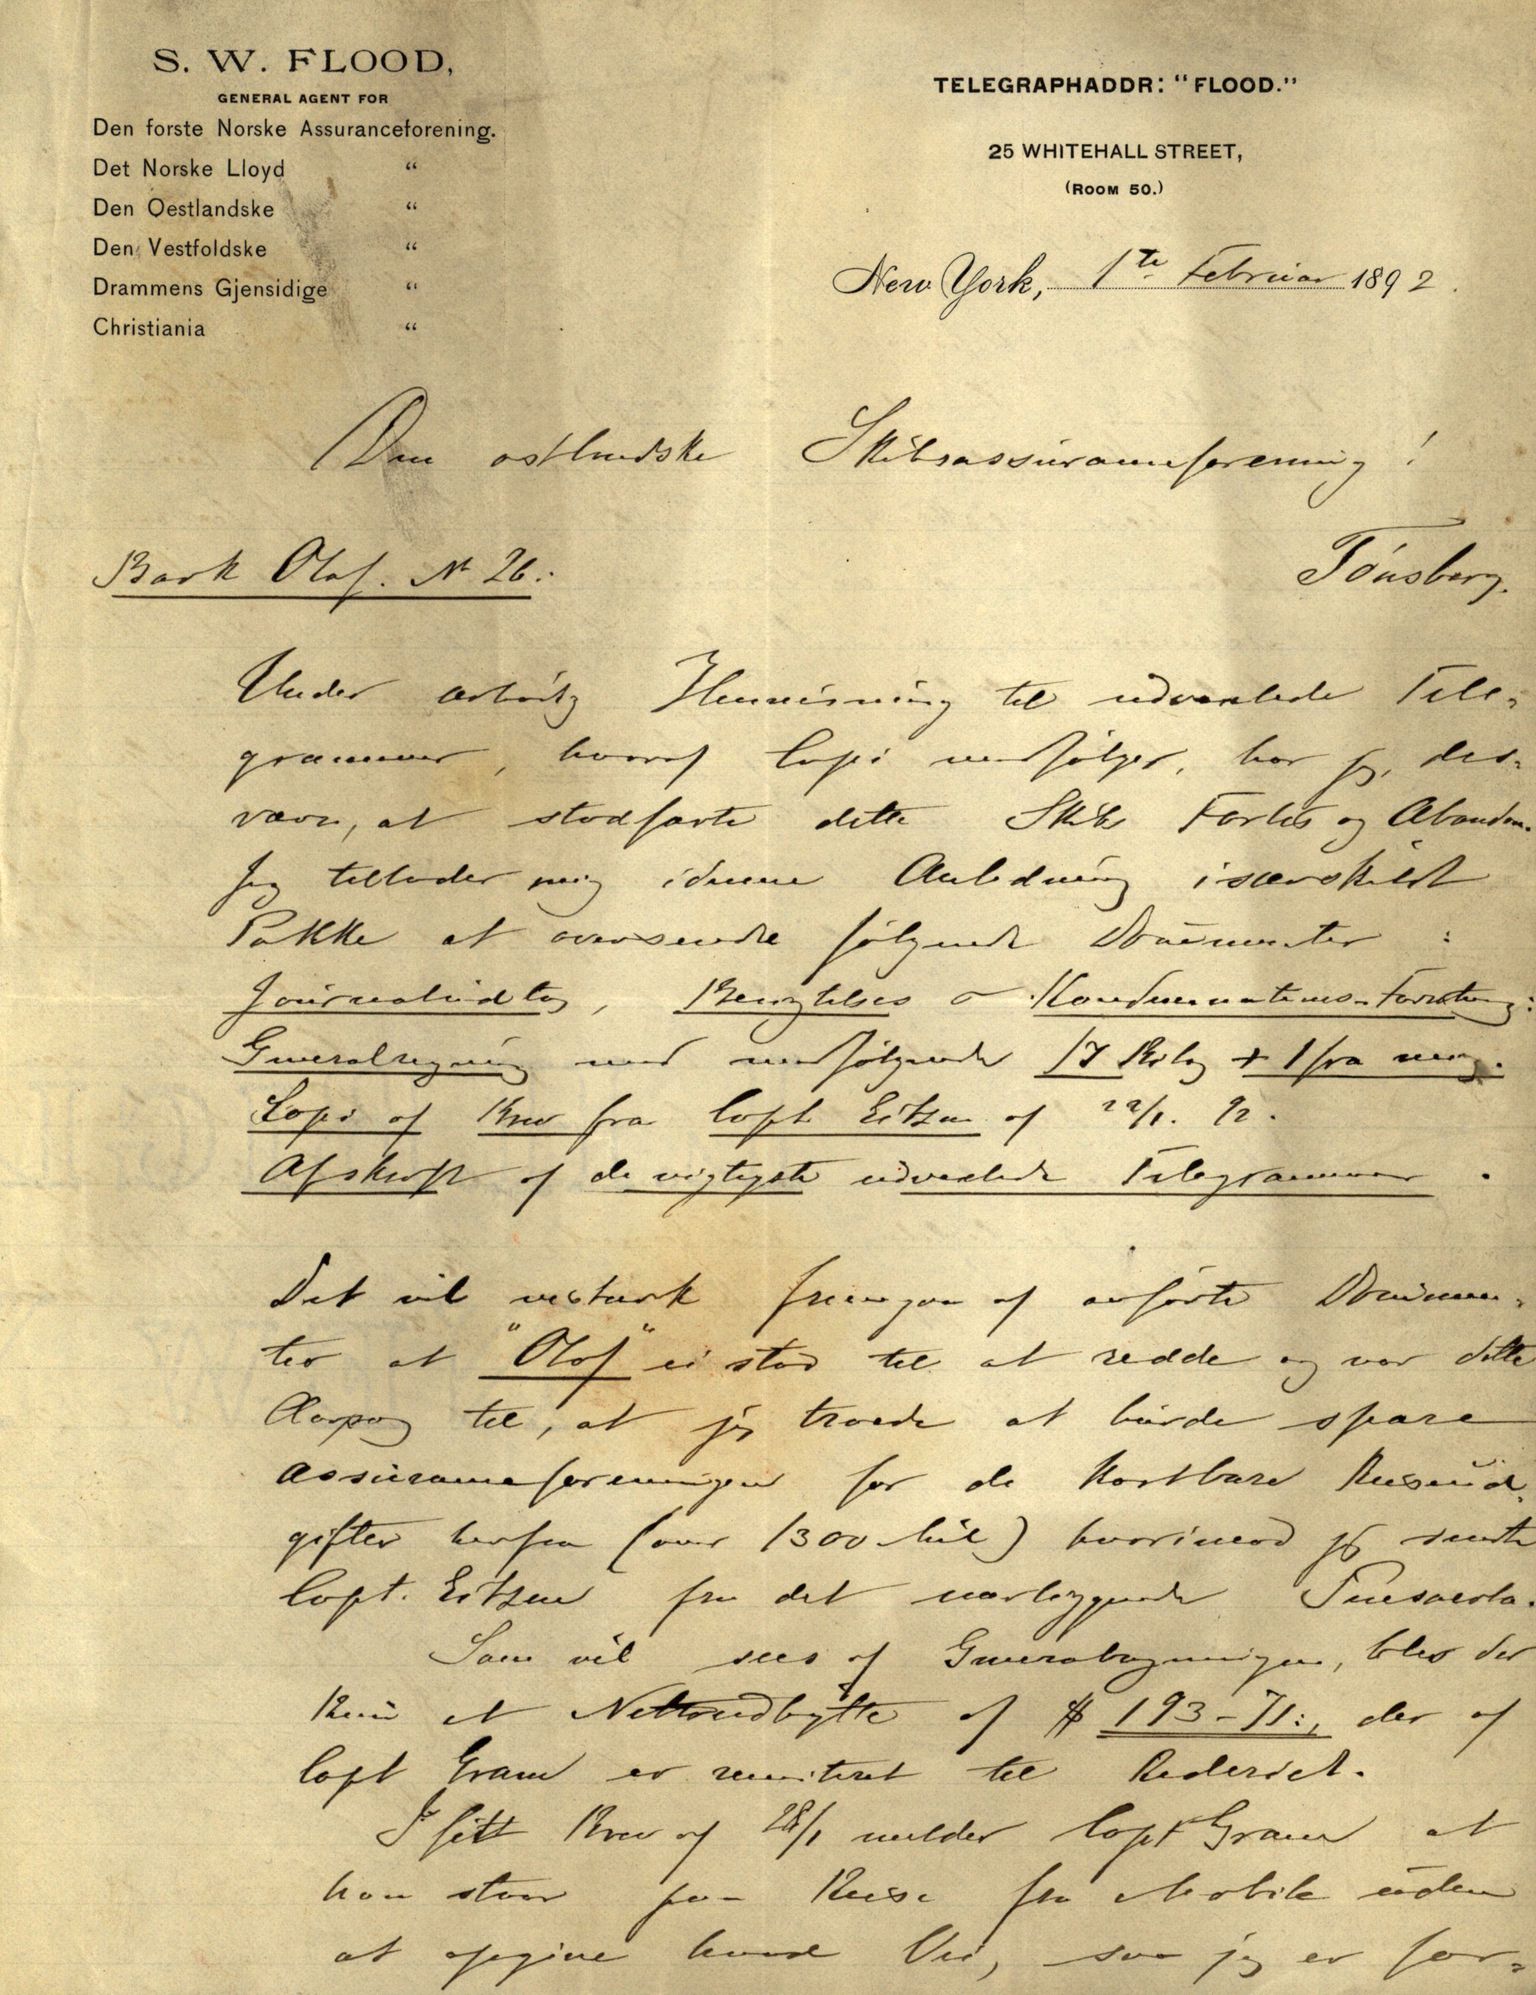 S. W. FLOOD,
GENERAL AGENT FOR
Den forste Norske Assuranceforening.
Det Norske Lloyd “
Den Oestlandske “
Den Vestfoldske “
Drammens Gjensidige “
Christiania “
TELEGRAPHADDR: “FLOOD.”
25 WHITEHALL STREET,
(ROOM 50.)
New York, 1te Februar 1892.
Den østlandske Skibsassuranceforening!
Tönsberg.
Bark Olaf. Nr 26.
Under ærbödig Henvisning til udvexlede Tele-
grammer, hvoraf Copi medfölger, har jeg, des-
værre, at stadfæste dette Skibs Forlis og Abandon.
Jeg tillader mig idenne Anledning isærskildt
Pakke at oversende fölgende Documenter:
Journaludtog, Besigtelses o Kondemnations-Forretning:
Generalregning med medfölgende 17 Bilag + 1 fra mig.
Copi af Brev fra Capt. Eitzen af 22/1. 92.
Afskrift af de vigtigste udvexlede Telegrammer.
Det vil nok fremgaa af anförte Documen-
ter at "Olaf" ei stod til at redde og var dette
Aarsag til, at jeg troede at burde spare
Assuranceforeningen for de kostbare Reiseud-
gifter herfra (over 1300 Mil) hvorimod jeg sendte
Capt. Eitzen fra det nærliggende Pensacola.
Som vil sees af Generalregningen, blev der
kun et Nettoudbytte af $ 193-71:, der af
Capt Gram er remitteret til Rederiet.
I sitt Brev af 28/1 melder Capt Gram at
han staar paa Reise fra Mobile uden
at opgive hvad Vei, saa jeg er for-